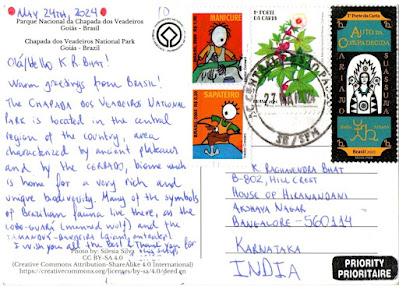 MAY 24TH, 2024
Parque Nacional da Chapada dos Veadeiros
Goiás - Brazil
Chapada dos Veadeiros National Park
Goiás - Brazil
Olá/Hello K R Bhat!
Warm greetings from Brasil!
The Chapada dos Veadeiros National
Park is located in the central
region of the country, area
characterized by ancient plateaus
and by the CERRADO, biome wich
is home for a very rich and
unique biodiversity. Many of the symbols
of Brazilian fauna live there, as the
lobo-guará (maned wolf) and the
tamanduá-bandeira (giant anteater)
I wish you all the best & thank you for
Photo by: Silésia Silva
CC BY-SA 4.0
(Creative Commons Attribution-ShareAlike 4.0 International)
https://creativecommons.org/licenses/by-sa/4.0/deed.en
10
MANICURE
SAPATEIRO
1º PORTE
DA CARTA
1º Porte da Carta
AUTO DA
COMPADECIDA
ARIANO
SUASSUNA
Brasil 2007
K. RAGHAVENDRA BHAT
B-802, HILL CREST
HOUSE OF HIRANANDANI
AKSHAYA NAGAR
BANGALORE - 560114
KARNATAKA
INDIA
PRIORITY
PRIORITAIRE